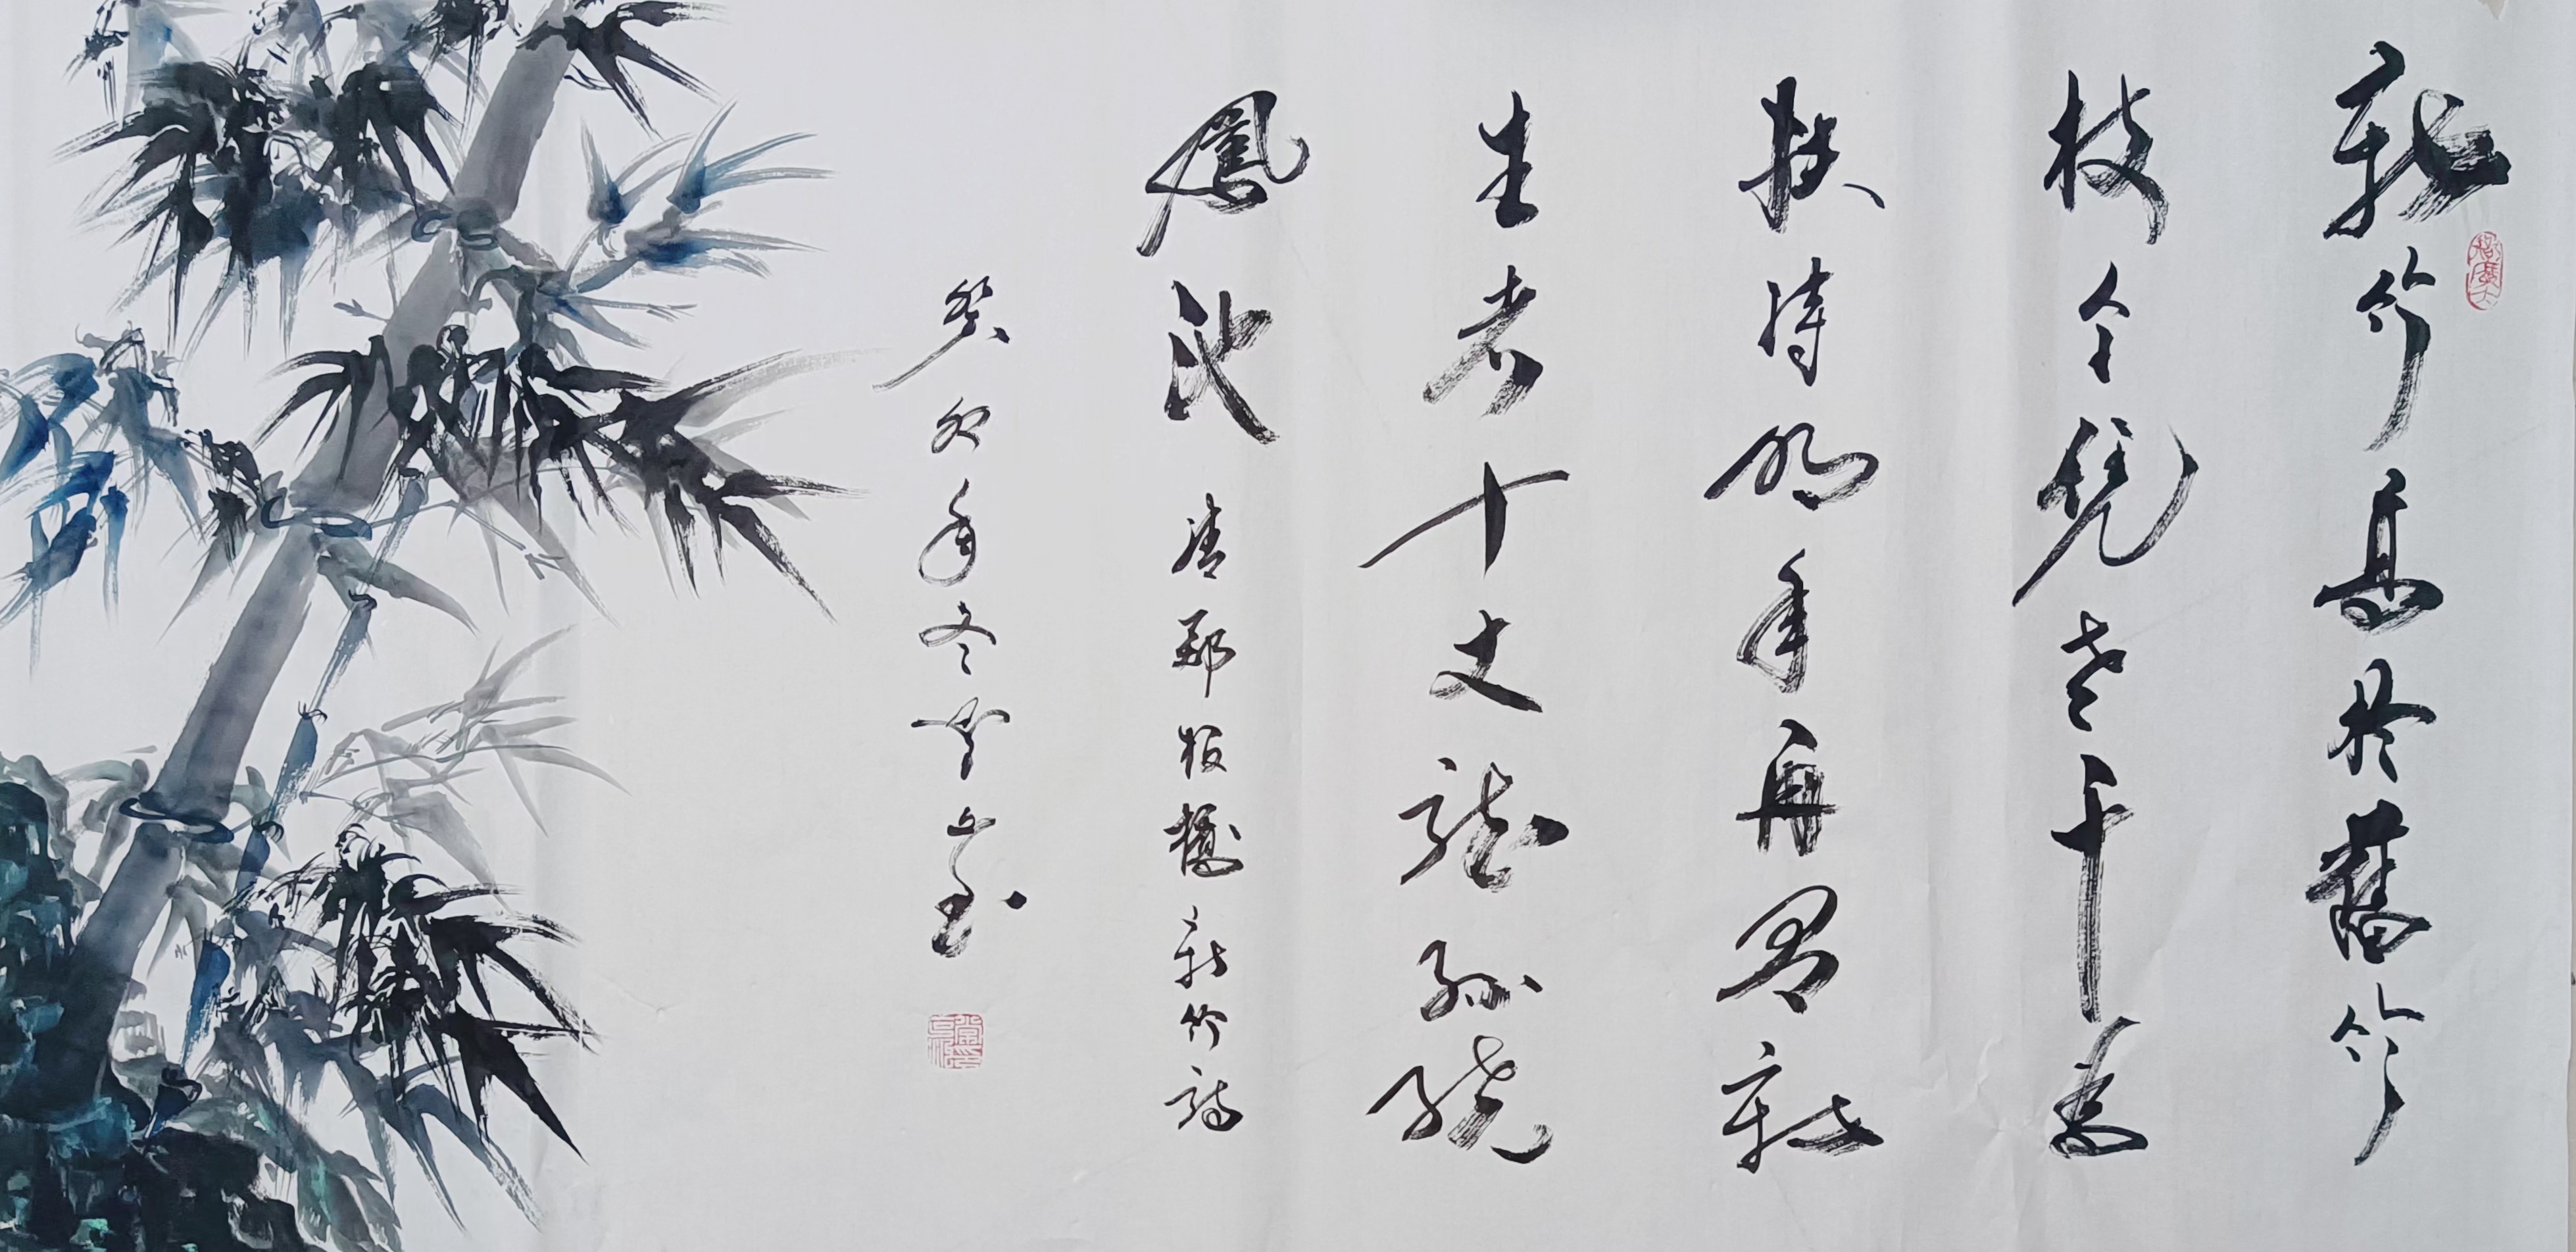 新竹高於舊竹
枝全憑老干為
扶持明年再有新
生者十丈龍孫繞
鳳池 清鄭板橋新竹詩
癸卯年冬